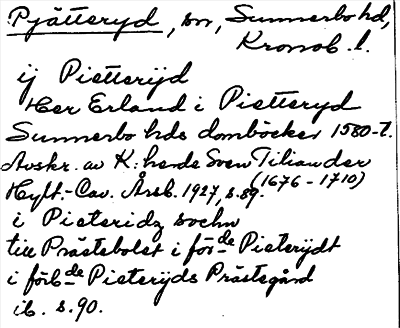 Pjätteryd, sn, Sunnerbo hd,
Kronob. l.
ij Pietterijd
Her Erland i Pietteryd
Sunnerbo hds domböcker 1580-t.
Avskr. av K: herde Sven Tiliander
(1676-1710)
Hylt.-Cav. Årsb. 1927, s. 89.
i Pieteridz sochn
till Prästebolet i förde Pieterijdt
i förbde Pieterijds Prästegård
ib. s. 90.